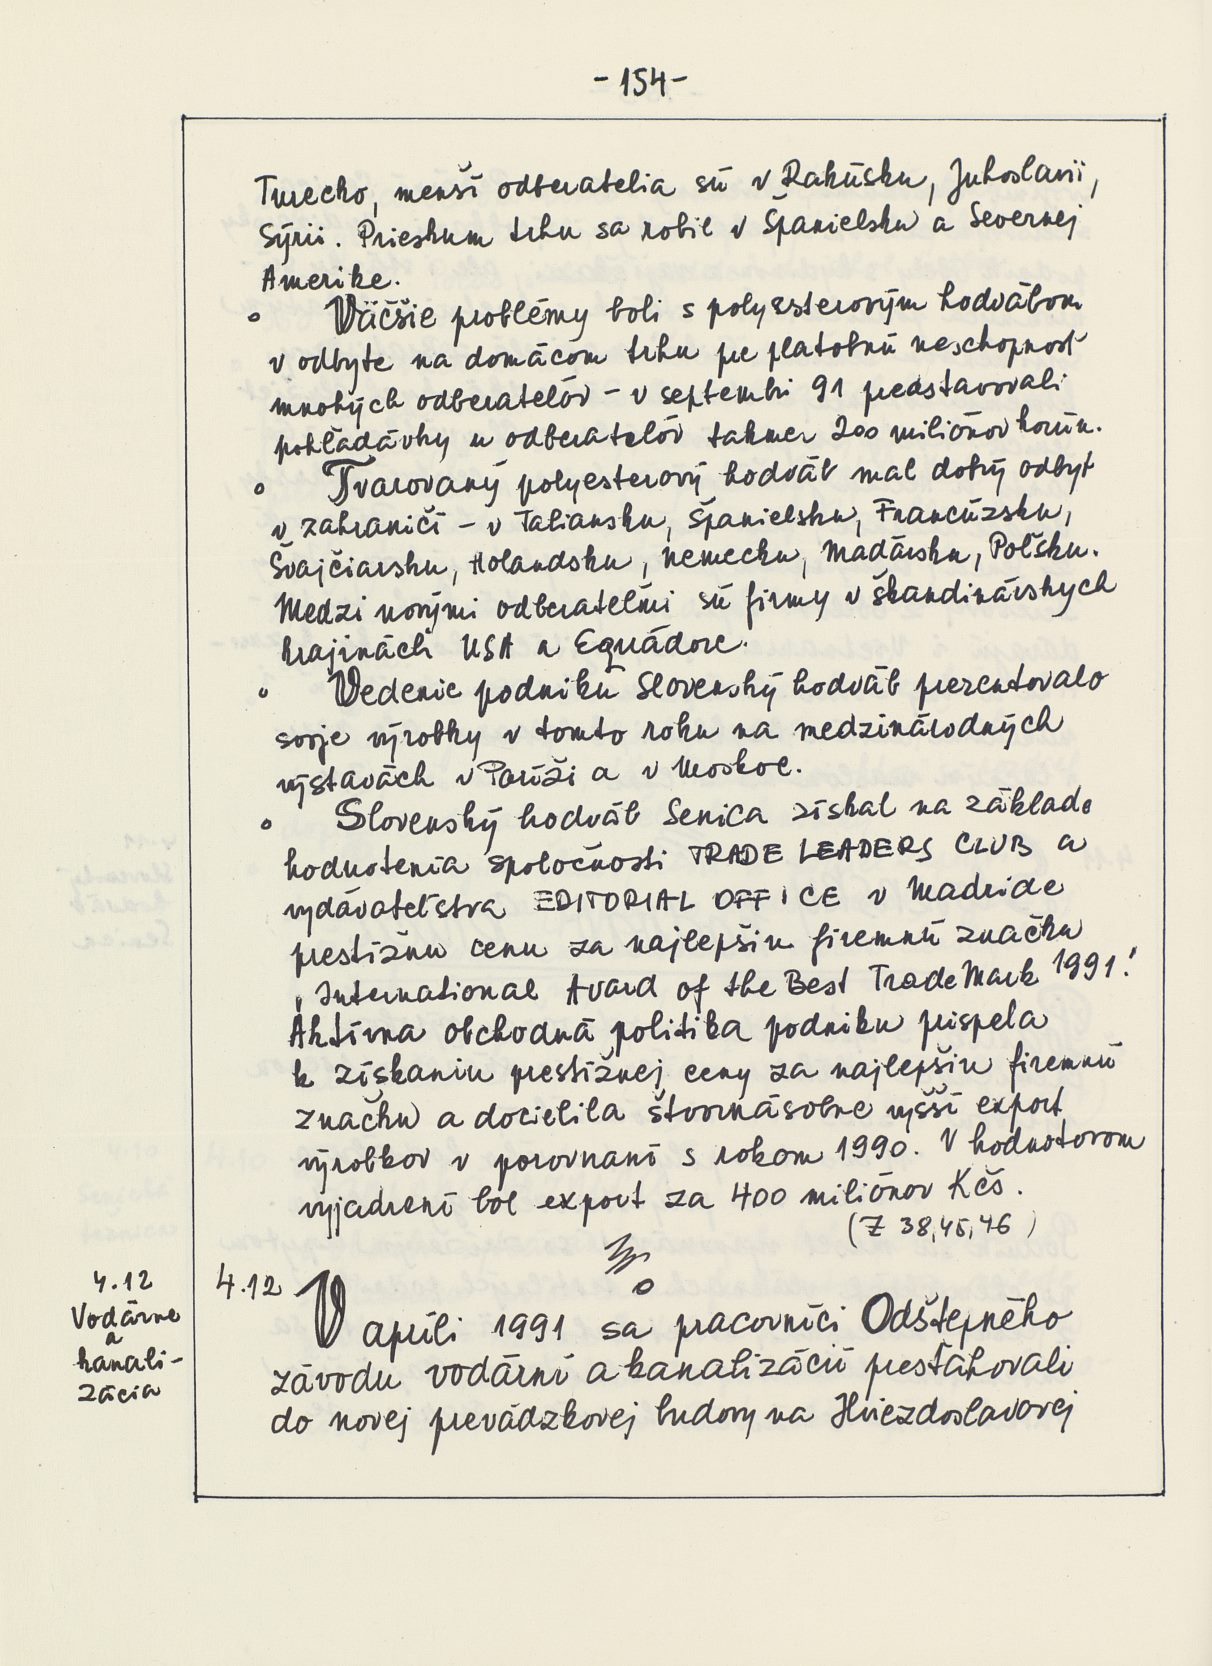 - 154 -
Turecko, menší odberatelia sú v Rakúsku, Juhoslavii,
Sýrii. Prieskum trhu sa robil v Španielsku a Severnej
Amerike.
o Väčšie problémy boli s polyesterovým hodvábom
v odbyte na domácom trhu pre platobnú neschopnosť
mnohých odberateľov - v septembri 91 predstavovali
pohľadávky u odberateľov takmer 200 miliónov korún.
o Tvarovaný polyesterový hodváb mal dobrý odbyt
v zahraničí - v Taliansku, Španielsku, Francúzsku,
Švajčiarsku, Holandsku, Nemecku, Maďarsku, Poľsku.
Medzi novými odberateľmi sú firmy v škandinávskych
krajinách USA a Equádore.
o Vedenie podniku Slovenský hodváb prezentovalo
svoje výrobky v tomto roku na medzinárodných
výstavách v Paríži a v Moskve.
o Slovenský hodváb Senica získal na základe
hodnotenia spoločnosti TRADE LEADERS CLUB a
vydávateľstva EDITORIAL OFFICE v Madride
prestížnu cenu za najlepšiu firemnú značku
"International Avard of the Best Trade Mark 1991!
Aktívna obchodná politika podniku prispela
k získaniu prestížnej ceny za najlepšiu firemnú
značku a docielila štvornásobne vyšší export
výrobkov v porovnaní s rokom 1990. V hodnotovom
vyjadrení bol export za 400 miliónov Kčs.
(Z 38,45,46)
4.12
Vodárne
a
kanali-
zácia
4.12 V apríli 1991 sa pracovníci Odštepného
závodu vodární a kanalizácií presťahovali
do novej prevádzkovej budovy na Hviezdoslavovej